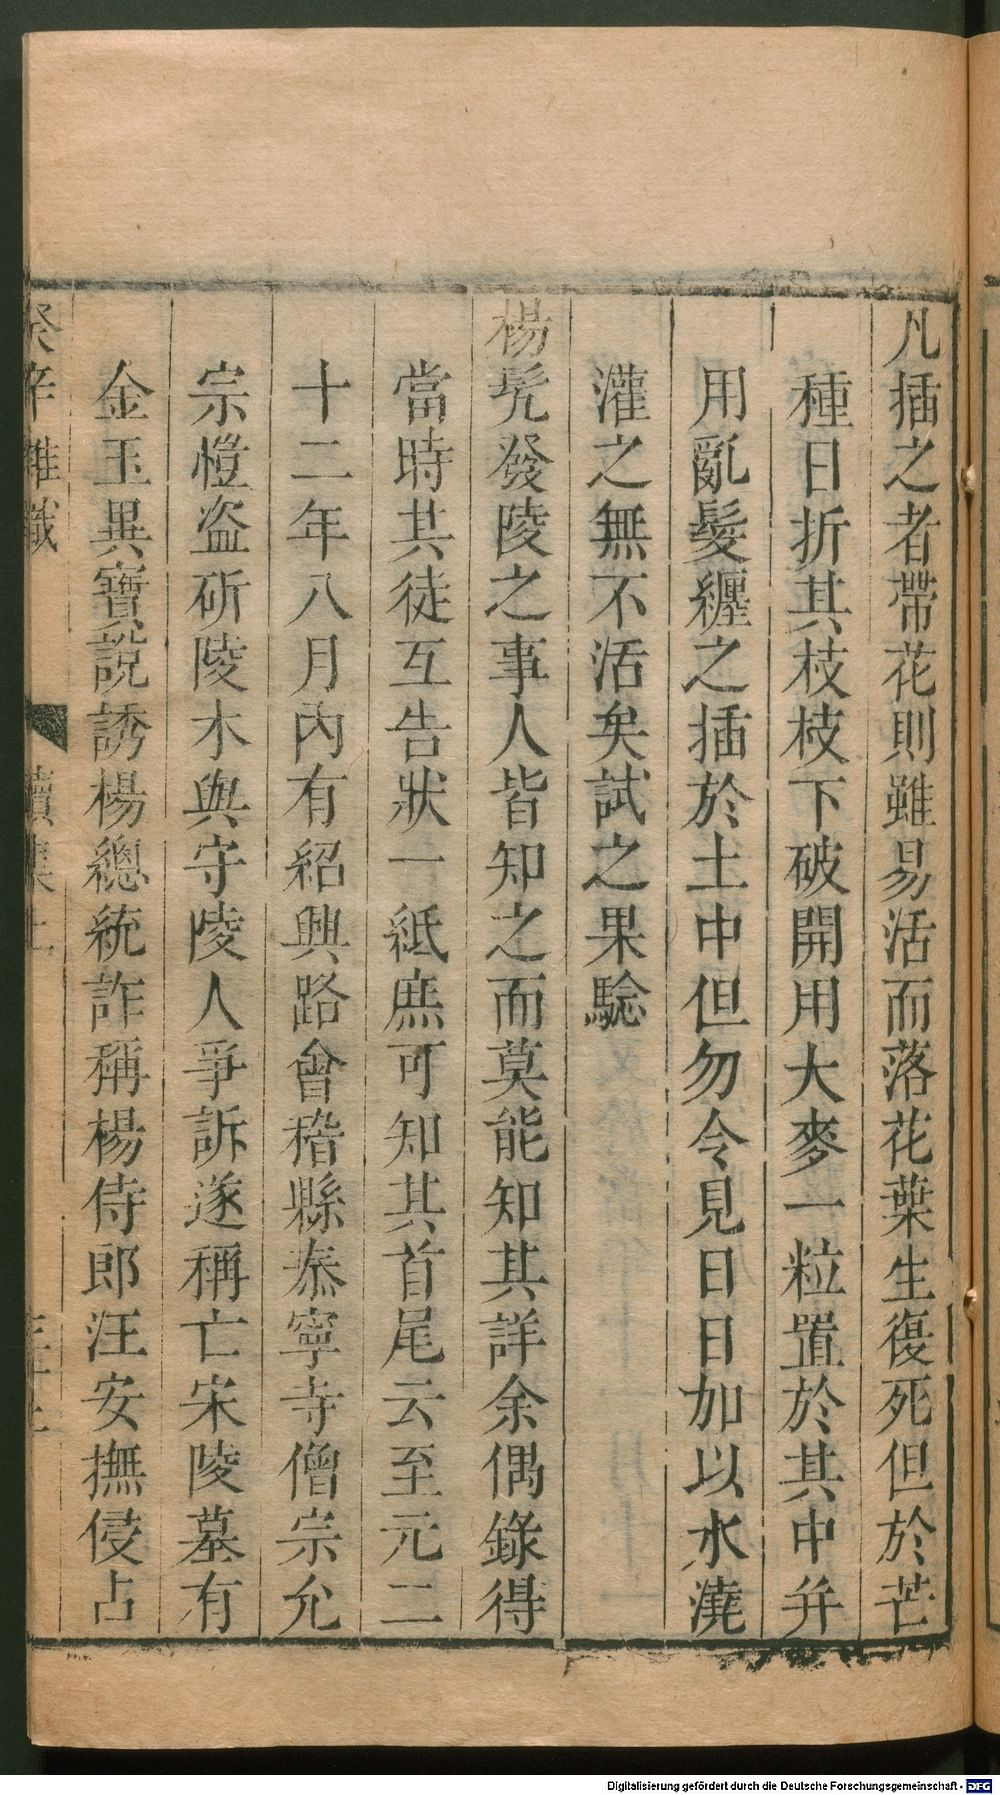 凡插之者帶花則雖易活而落花葉生復死但於芒
種日折其枝枝下破開用大麥一粒置於其中幷
用亂髮纏之插於土中但勿令見日日加以水澆
灌之無不活矣試之果騐
楊髠發陵之事人皆知之而莫能知其詳余偶錄得
當時其徒互告狀一紙庶可知其首尾云至元二
十二年八月內有紹興路會稽縣泰寧寺僧宗允
宗愷盜斫陵木與守陵人爭訴遂稱亡宋陵墓有
金玉異寶說誘楊總統詐稱楊侍郎汪安撫侵占
癸辛雜識 續集上
Digitalisierung gefördert durch die Deutsche Forschungsgemeinschaft - DFG